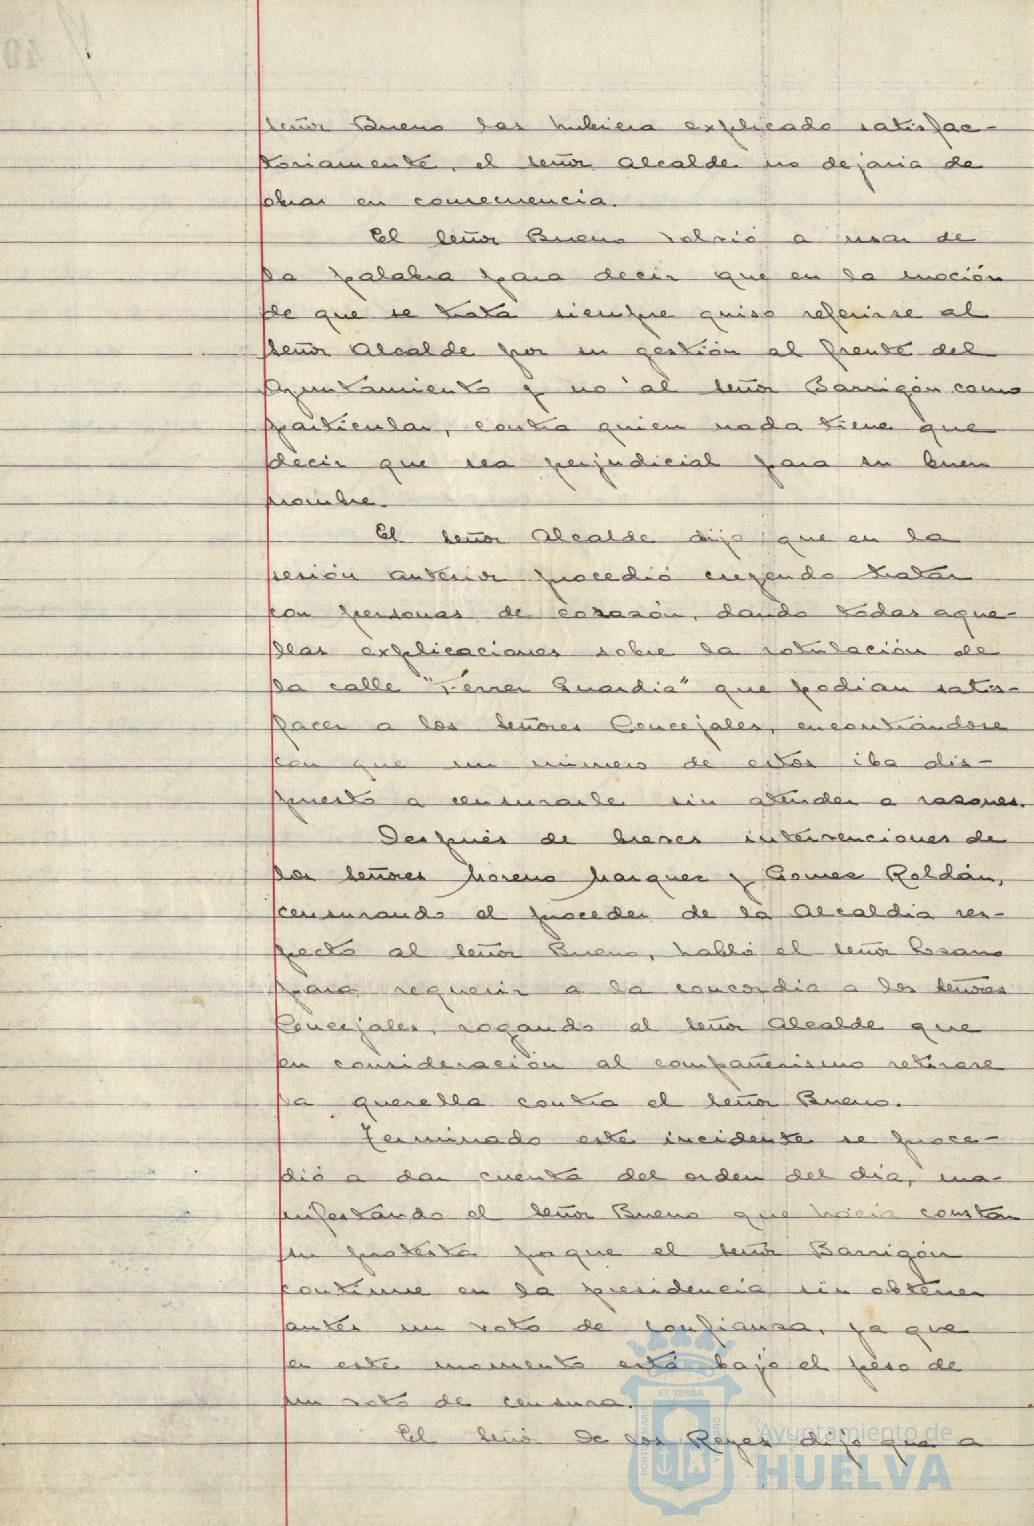 señor Bueno las hubiera explicado satisfac-
toriamente, el señor Alcalde no dejaria de
obrar en consecuencia.
El señor Bueno volvió a usar de
la palabra para decir que en la moción
de que se trata siempre quiso referirse al
señor Alcalde por su gestión al frente del
Ayuntamiento y no al señor Barrigón como
particular, contra quien nada tiene que
decir que sea perjudicial para su buen
nombre.
El señor Alcalde dijo que en la
sesión anterior procedió creyendo tratar
con personas de corazón, dando todas aque-
llas explicaciones sobre la rotulación de
la calle "Ferrer Guardia" que podian satis-
facer a los señores Concejales, encontrándose
con que un número de estos iba dis-
puesto a censurarle sin atender a razones.
Después de breves intervenciones de
los señores Moreno Marquez y Gomez Roldán,
censurando el proceder de la Alcaldia res-
pecto al señor Bueno, habló el señor Lozano
para requerir a la concordia a los señores
Concejales, rogando al señor Alcalde que
en consideración al compañerismo retirase
la querella contra el señor Bueno.
Terminado este incidente se proce-
dió a dar cuenta del orden del dia, ma-
nifestando el señor Bueno que hacia constar
su protesta porque el señor Barrigón
continue en la presidencia sin obtener
antes un voto de confianza, ya que
en este momento está bajo el peso de
un voto de censura.
El señor De los Reyes dijo que a
Ayuntamiento de
HUELVA